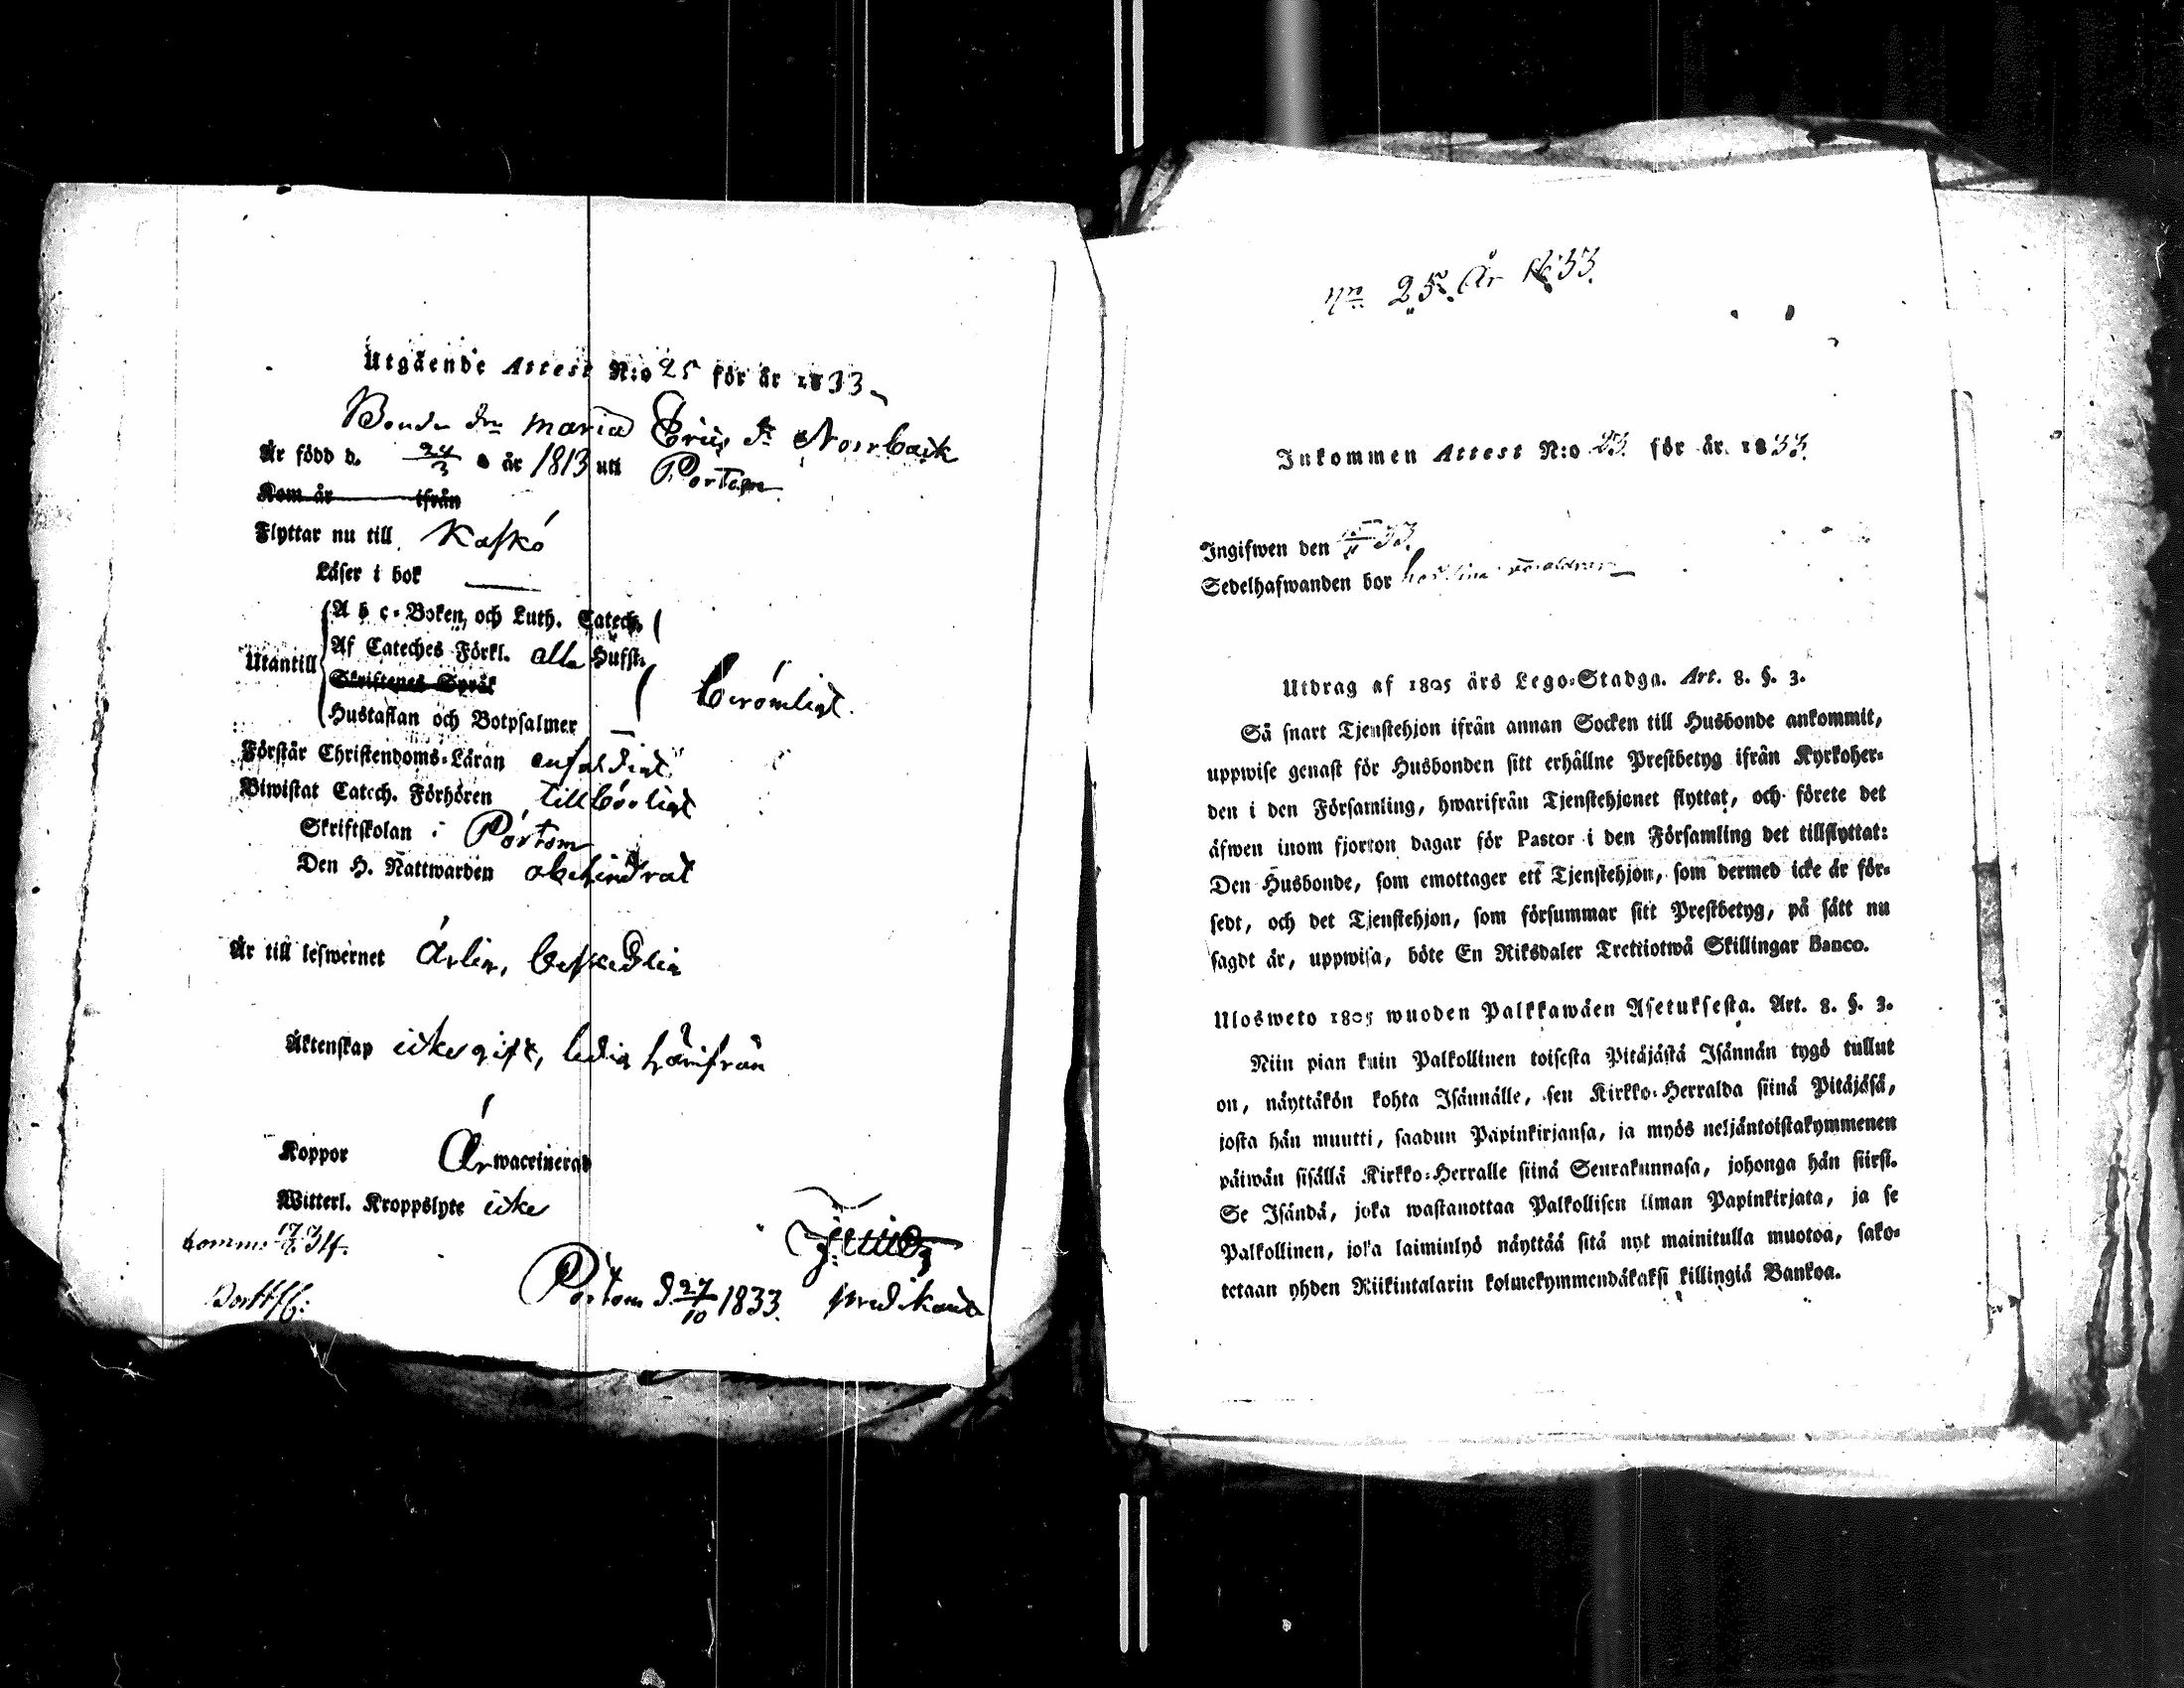 Utgående Attest N:o 25 för år 1833
Bonde dr. Maria Eriks dr Norrback
År född d. 24/3 år 1813 uti Portom
Kom år ifrån
Flyttar nu till Kaskö
Läser i bok
Utantill
A b c-Boken, och Luth. Catech.
Af Cateches Förkl. alla Hufst.
Skriftenes Språk
Hustaflan och Botpsalmer
berömligt.
Förstår Christendoms-Läran enfaldigt
Biwistat Catech. Förhören tillbörligt
Skriftskolan i Pörtom
Den H. Nattwarden obehindrat
Är till lefwernet ärlig, beskedlig
Äktenskap icke gift, ledig härifrån
Koppor Är waccinerad
Witterl. Kroppslyte icke
Pörtom d. 27/10 1833. predikant
No 25. År 1833.
Inkommen Attest N:o 25. för år 1833.
Ingifwen den 33.
Sedelhafwanden bor hos sina föräldrar
Utdrag af 1805 års Lego-Stadga. Art. 8. §. 3.
Så snart Tjenstehjon ifrån annan Socken till Husbonde ankommit,
uppwise genast för Husbonden sitt erhållne Prestbetyg ifrån Kyrkoher-
den i den Församling, hwarifrån Tjenstehjonet flyttat, och förete det
äfwen inom fjorton dagar för Pastor i den Församling det tillflyttat:
Den Husbonde, som emottager ett Tjenstehjon, som dermed icke är för-
sedt, och det Tjenstehjon, som försummar sitt Prestbetyg, på sätt nu
sagdt är, uppwisa, böte En Riksdaler Trettiotwå Skillingar Banco.
Ulosweto 1805 wuoden Palkkawäen Asetuksesta. Art. 8. §. 3.
Niin pian kuin Palkollinen toisesta Pitäjästä Isännän tygö tullut
on, näyttäkön kohta Isännälle, sen Kirkko-Herralda siinä Pitäjäsä,
josta hän muutti, saadun Papinkirjansa, ja myös neljäntoistakymmenen
päiwän sisällä Kirkko-Herralle siinä Seurakunnasa, johonga hän siirst.
Se Isändä, joka wastanottaa Palkollisen ilman Papinkirjata, ja se
Palkollinen, joka laiminlyö näyttää sitä nyt mainitulla muotoa, sako-
tetaan yhden Riikintalarin kolmekymmendäkaksi killingiä Bankoa.